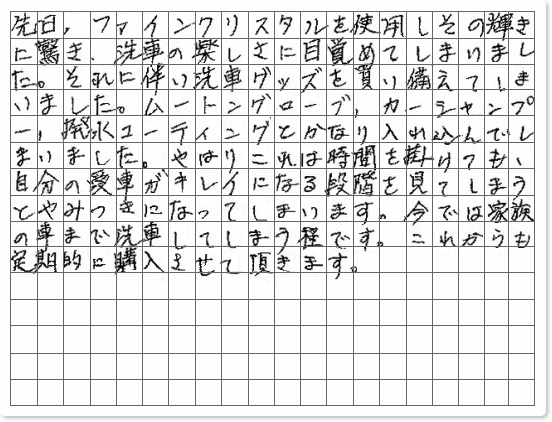 先日,ファインクリスタルを使用しその輝き
に驚き、洗車の楽しさに目覚めてしまいまし
た。それに伴い洗車グッズを買い備えてしま
いました。ムートングローブ,カーシャンプ
ー,撥水コーティングとかなり入れ込んでし
まいました。やはりこれは時間を掛けても、
自分の愛車がキレイになる段階を見てしまう
とやみつきになってしまいます。今では家族
の車まで洗車してしまう程です。これからも
定期的に購入させて頂きます。